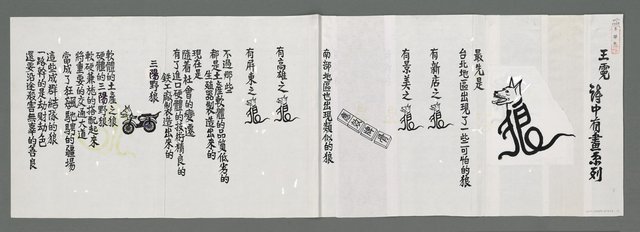 王霓 詩中有畫系列
狼
最先是
台北地區出現了一些可怕的狼
有新店之狼
有景美之狼
南部地區也出現類似的狼
有高雄之狼
有屏東之狼
不過那些
都是土產軟體的品質低劣的
生殖器製造出來的
現在是
隨著社會的變遷
有了進口硬體的技術精良的
鈑工廠製造出來的
三陽野狼
軟體的土產之狼
硬體的三陽野狼
軟硬兼施的搭配起來
將重要的交通大道
當成了狂飆馳騁的疆場
這些成群結隊的狼
一路幹的是劫財劫色
還要沿途殺害無辜的善良